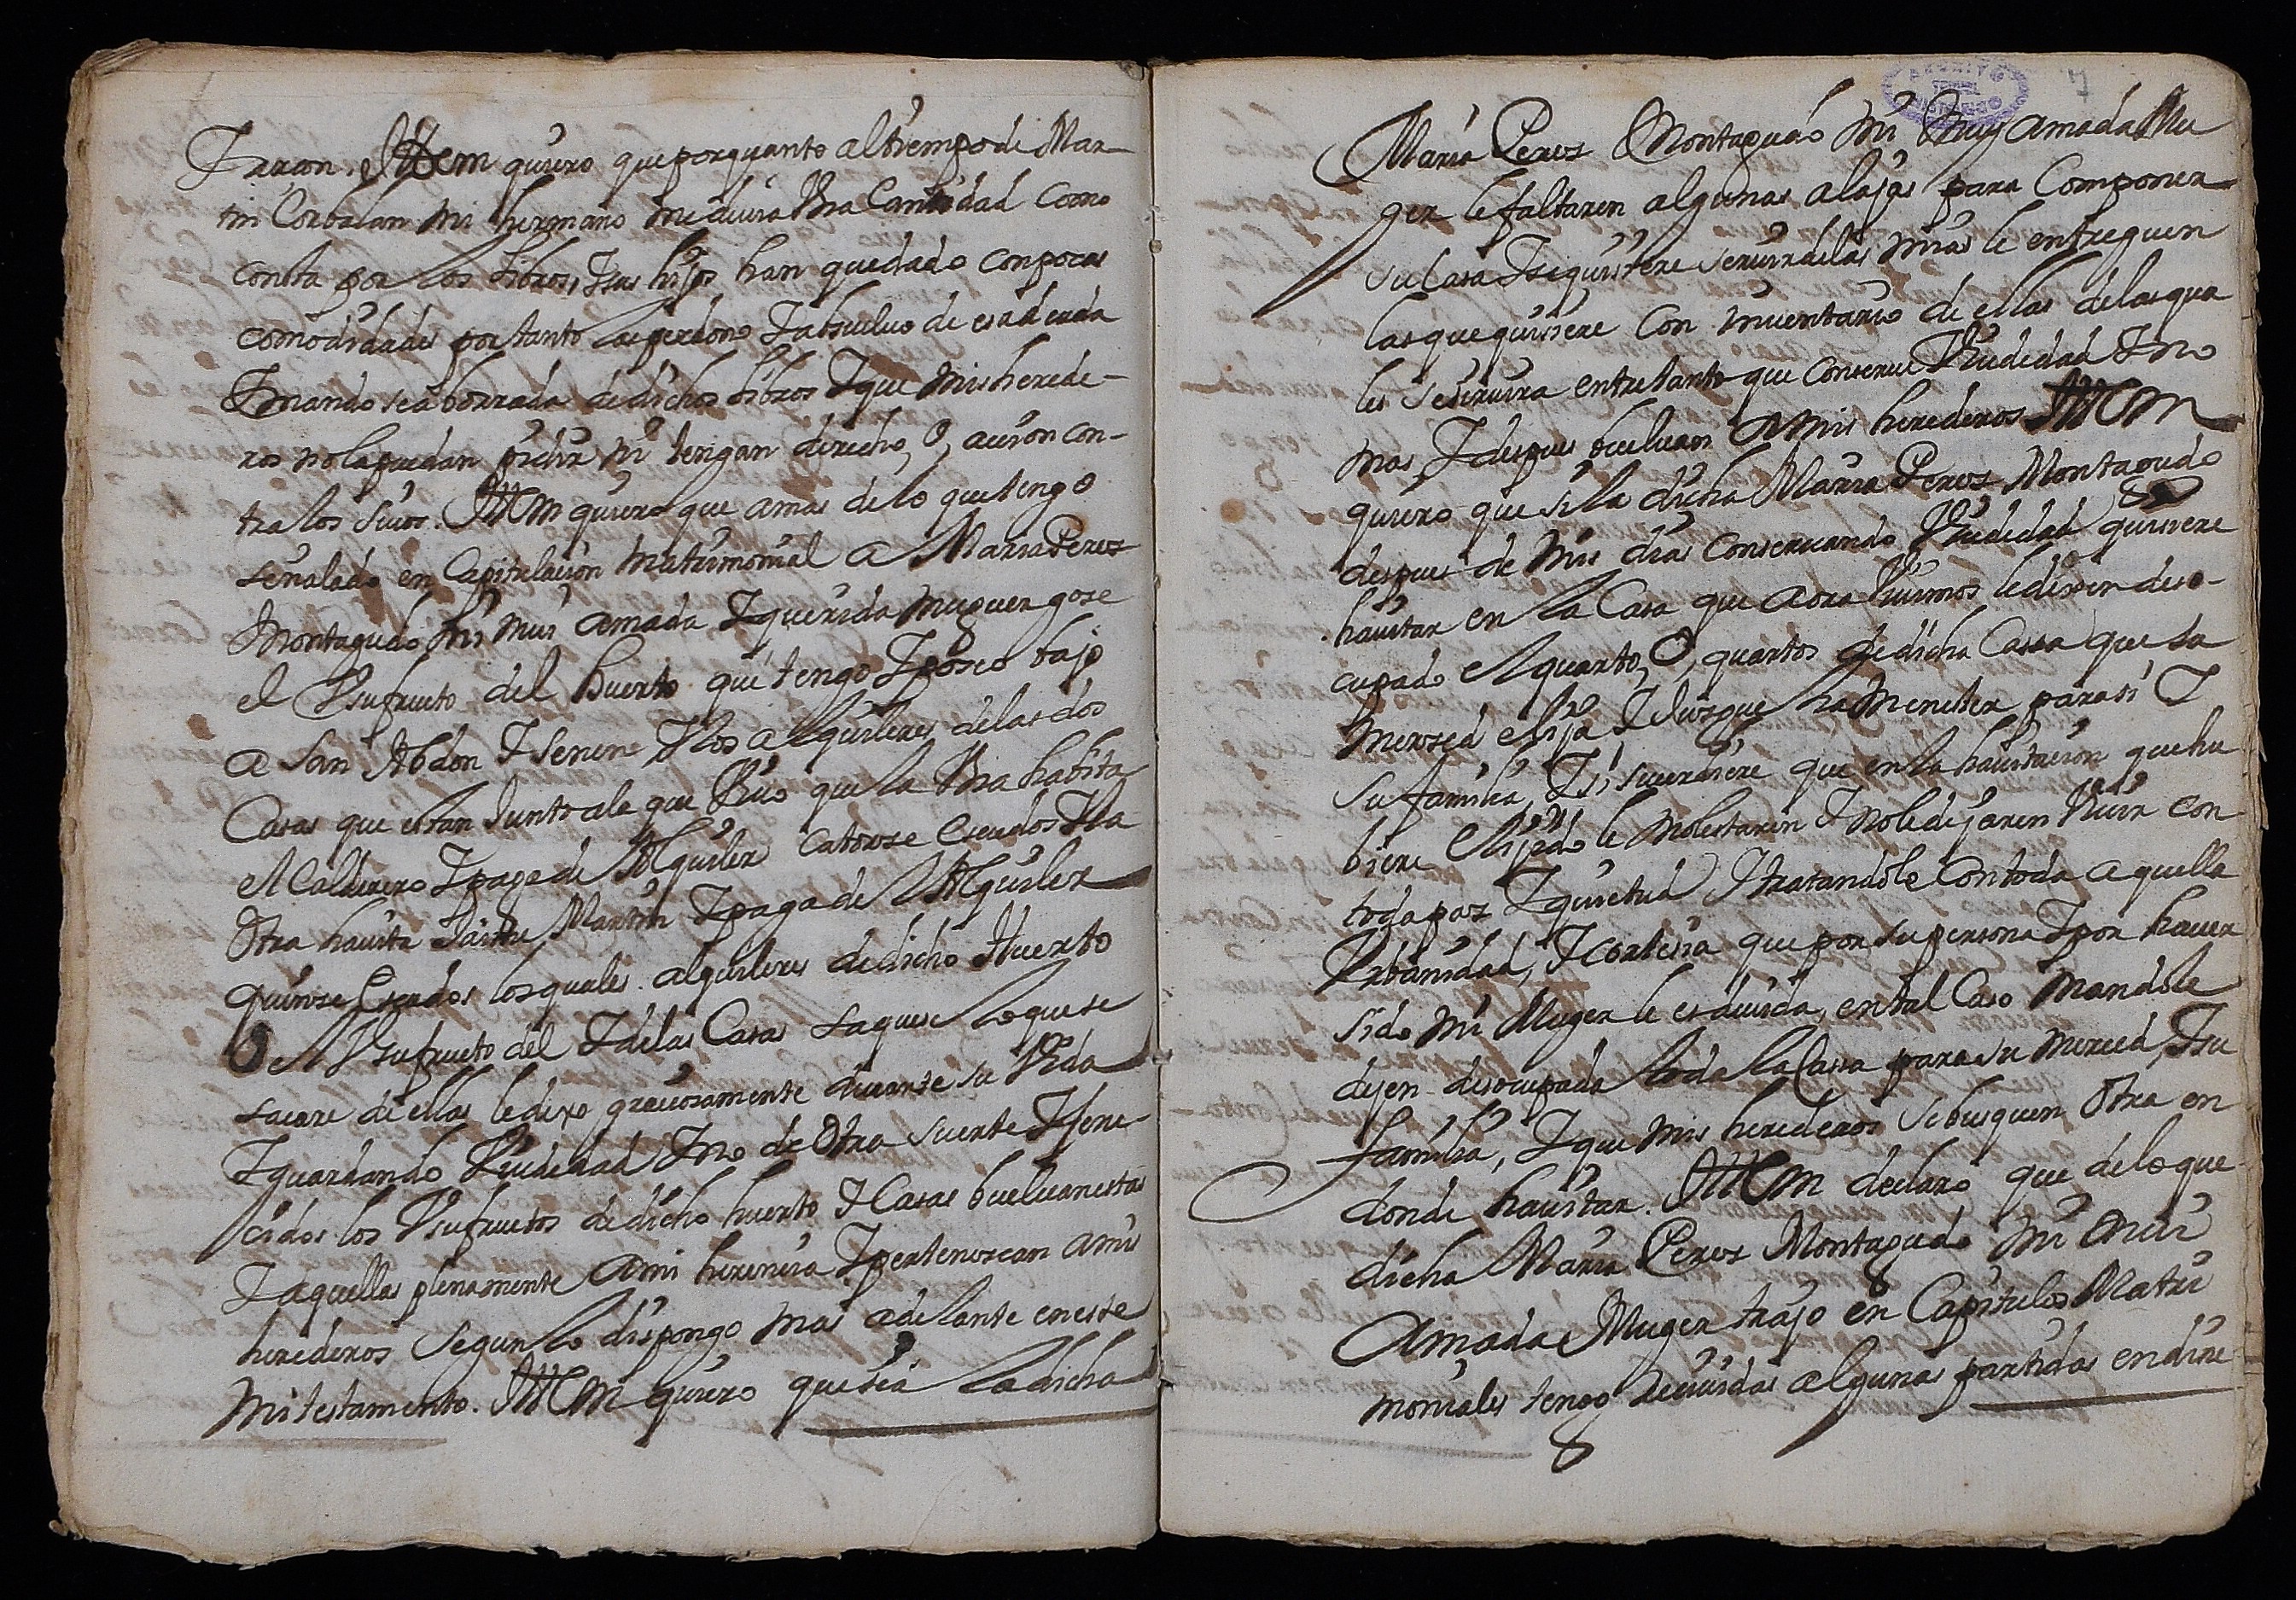 Yraçon. Ittem quiero que por quanto al tiempo de Mar-
tin Corbalan mi hermano me deuia Vna Cantidad como
consta por los libros, Y sus hijos han quedado con pocas
comodidades por tanto les perdono Y absueluo de esa deuda
Y mando sea borrada de dichos libros Y que mis herede-
ros no la puedan pidir ni tengan derecho, O, accion con-
tra los suios. Ittem quiero que a mas de lo que tengo
señalado en Capitulacion Matrimonial a Maria Peres
Montagudo mi mui amada Y querida muguer gose
el Vsufructo del huerto que tengo Y poseo bajo
a San Abdon Y Senen Y los alquileres de las dos
Casas que estan Junto al que Viuo que la Vna habita
el Calderero Y paga de Alquiler Catorse Escudos Y la
Otra hauita Jaime Martin Y paga de Alquiler
quinse Escudos los quales alquileres de dicho Huerto
O el Vsufructo del Y de las Casas saque se lo que se
sacare de ellas le dexo graciosamente durante su Vida
Y guardando Viudedad Y no de Otra suerte Y fene-
cidos los Vsufructos de dicho huerto Y Casas bueluan estas
Y aquellas plenamente a mi herencia Y pertenescan a mis
herederos segun lo dispongo mas adelante en este
mi testamento. Ittem quiero que si a la dicha
Maria Peres Montagudo mi Muy amada Mu
ger le faltaren algunas alajas para Componer
su Casa Y se quisiere seruir de las mias le entreguen
las que quisiere con inuentario de ellas de las qua
les se seruira entretanto que conserue Viudedad Y no
mas, Y despues bueluan a mis herederos Ittem
quiero que si la dicha Maria Peres Montagudo
despues de mis dias conseruando Viudedad quisiere
hauitar en la Casa que aora Viuimos le dexen deso-
cupado el quarto, O, quartos de dicha Casa que su
mersed elija Y los que ha Menester para si Y
su familia, Y si sucediere que en la hauitacion que hu
biere elijido le molestaren Y no le dejaren Viuir con
toda pas Y quietud Y tratandole con toda aquella
Vrbanidad, Y cortesia que por su persona Y por hauer
sido mi Muger le es deuida, en tal Caso Mandole
dejen desocupada toda la Casa para su merced, Y su
familia, Y que mis herederos se busquen Otra en
donde hauitar. Ittem declaro que de lo que
dicha Maria Peres Montagudo mi mui
Amada Muger trajo en Capitulos Matri
moniales tengo reciuidas algunas partidas en dine